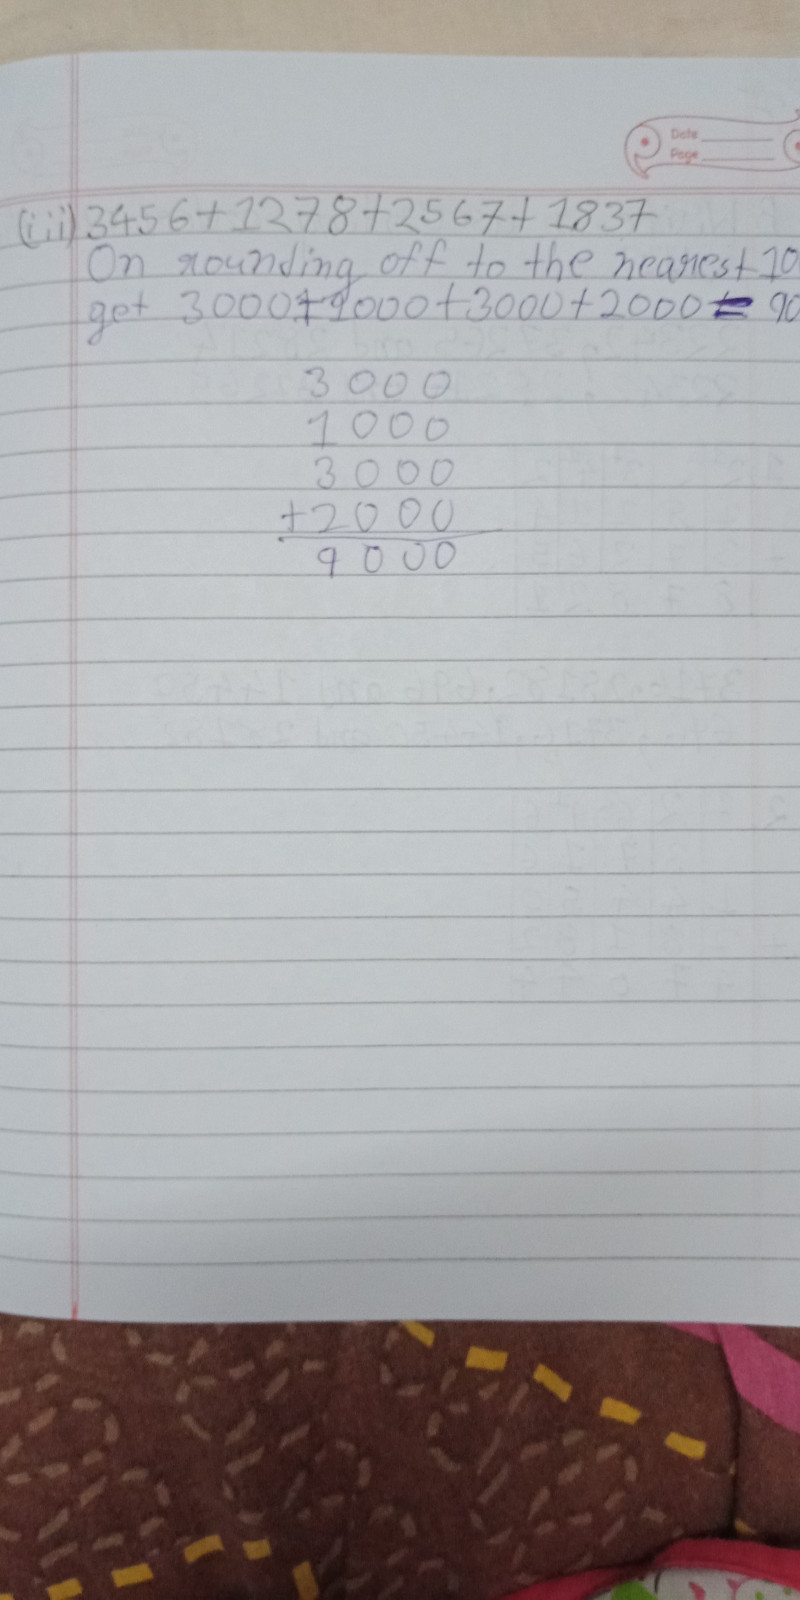 Date
Page
(iii) 3456+1278+2567+1837
On rounding off to the nearest 10
get 3000+1000+3000+2000= 90
3000
1000
3000
+2000
9000